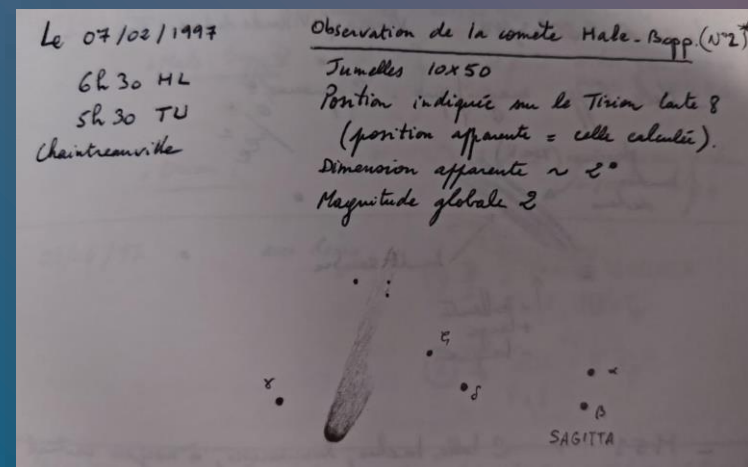 Le 07/02/1997
6h30 HL
5h30 TU
Chaintreauville
Observation de la comète Hale-Bopp. (N°2)*
Jumelles 10x50
Position indiquée sur le Tirion Carte 8
(position apparente = celle calculée).
Dimension apparente ~ 2°
Magnitude globale 2
γ
ζ
δ
α
β
SAGITTA